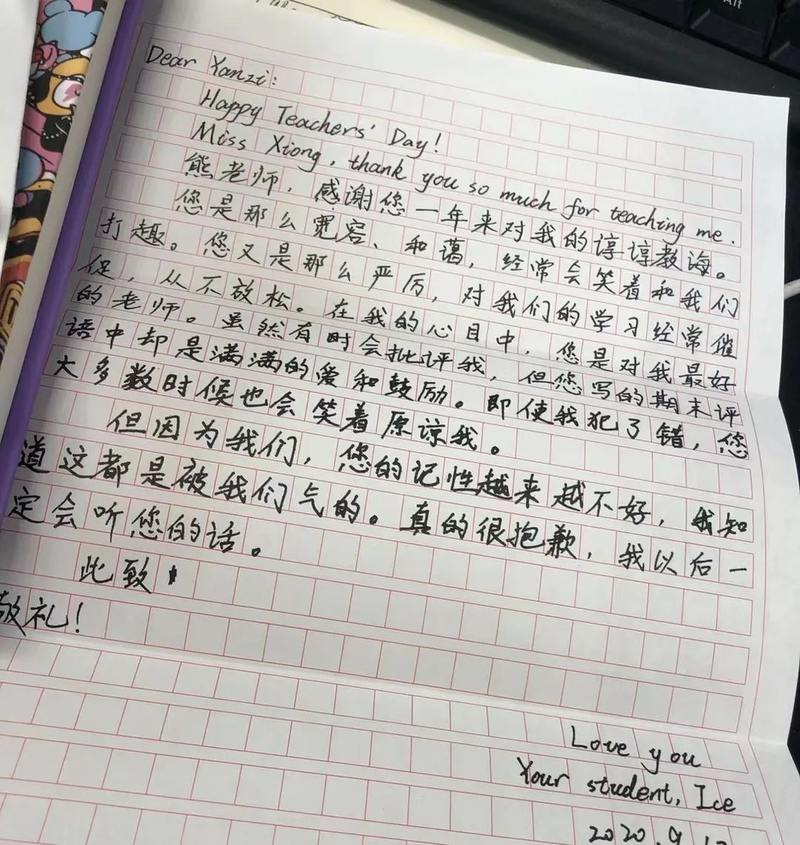 Dear Yanzi:
Happy Teachers' Day!
Miss Xiong, thank you so much for teaching me.
熊老师，感谢您一年来对我的谆谆教诲。
您是那么宽容、和蔼，经常会笑着和我们
打趣。您又是那么严厉，对我们的学习经常催
促，从不放松。在我的心目中，您是对我最好
的老师。虽然有时会批评我，但您写的期末评
语中却是满满的爱和鼓励。即使我犯了错，您
大多数时候也会笑着原谅我。
但因为我们，您的记性越来越不好，我知
道这都是被我们气的。真的很抱歉，我以后一
定会听您的话。
此致
敬礼！
Love you
Your student, Ice
2020.9